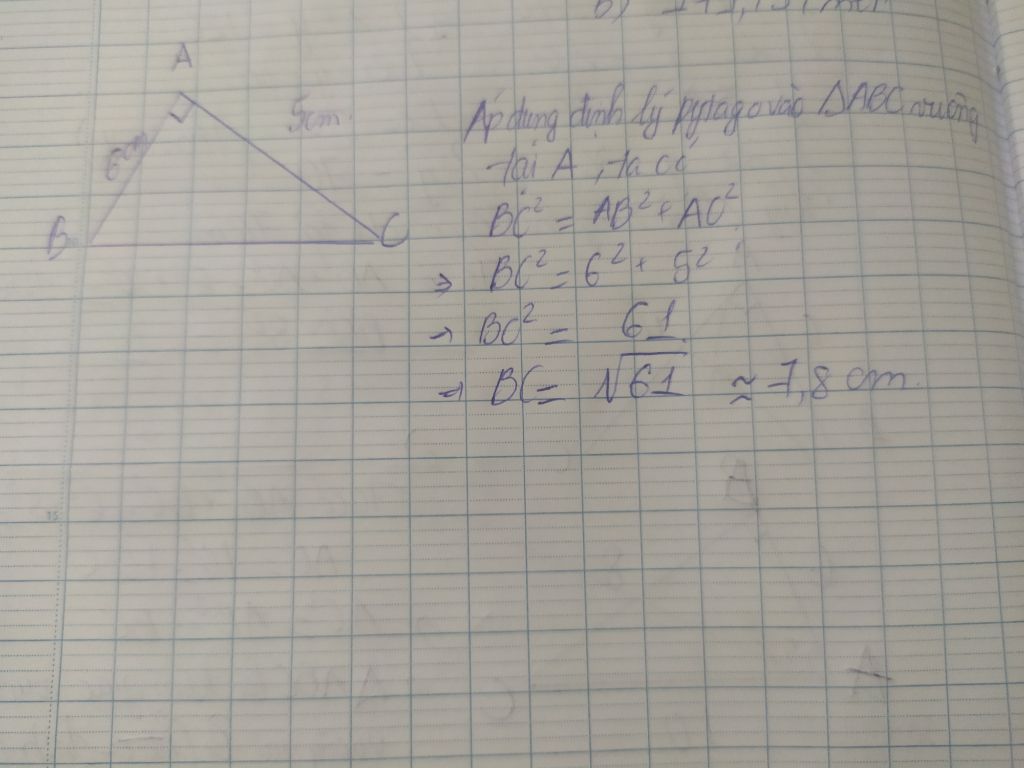 A
6cm
5cm.
B
C
Áp dụng định lý pytago vào ΔABC vuông
tại A, ta có
BC² = AB² + AC²
⇒ BC² = 6² + 5²
→ BC² = 61
→ BC = √61 ≈ 7,8 cm.
A